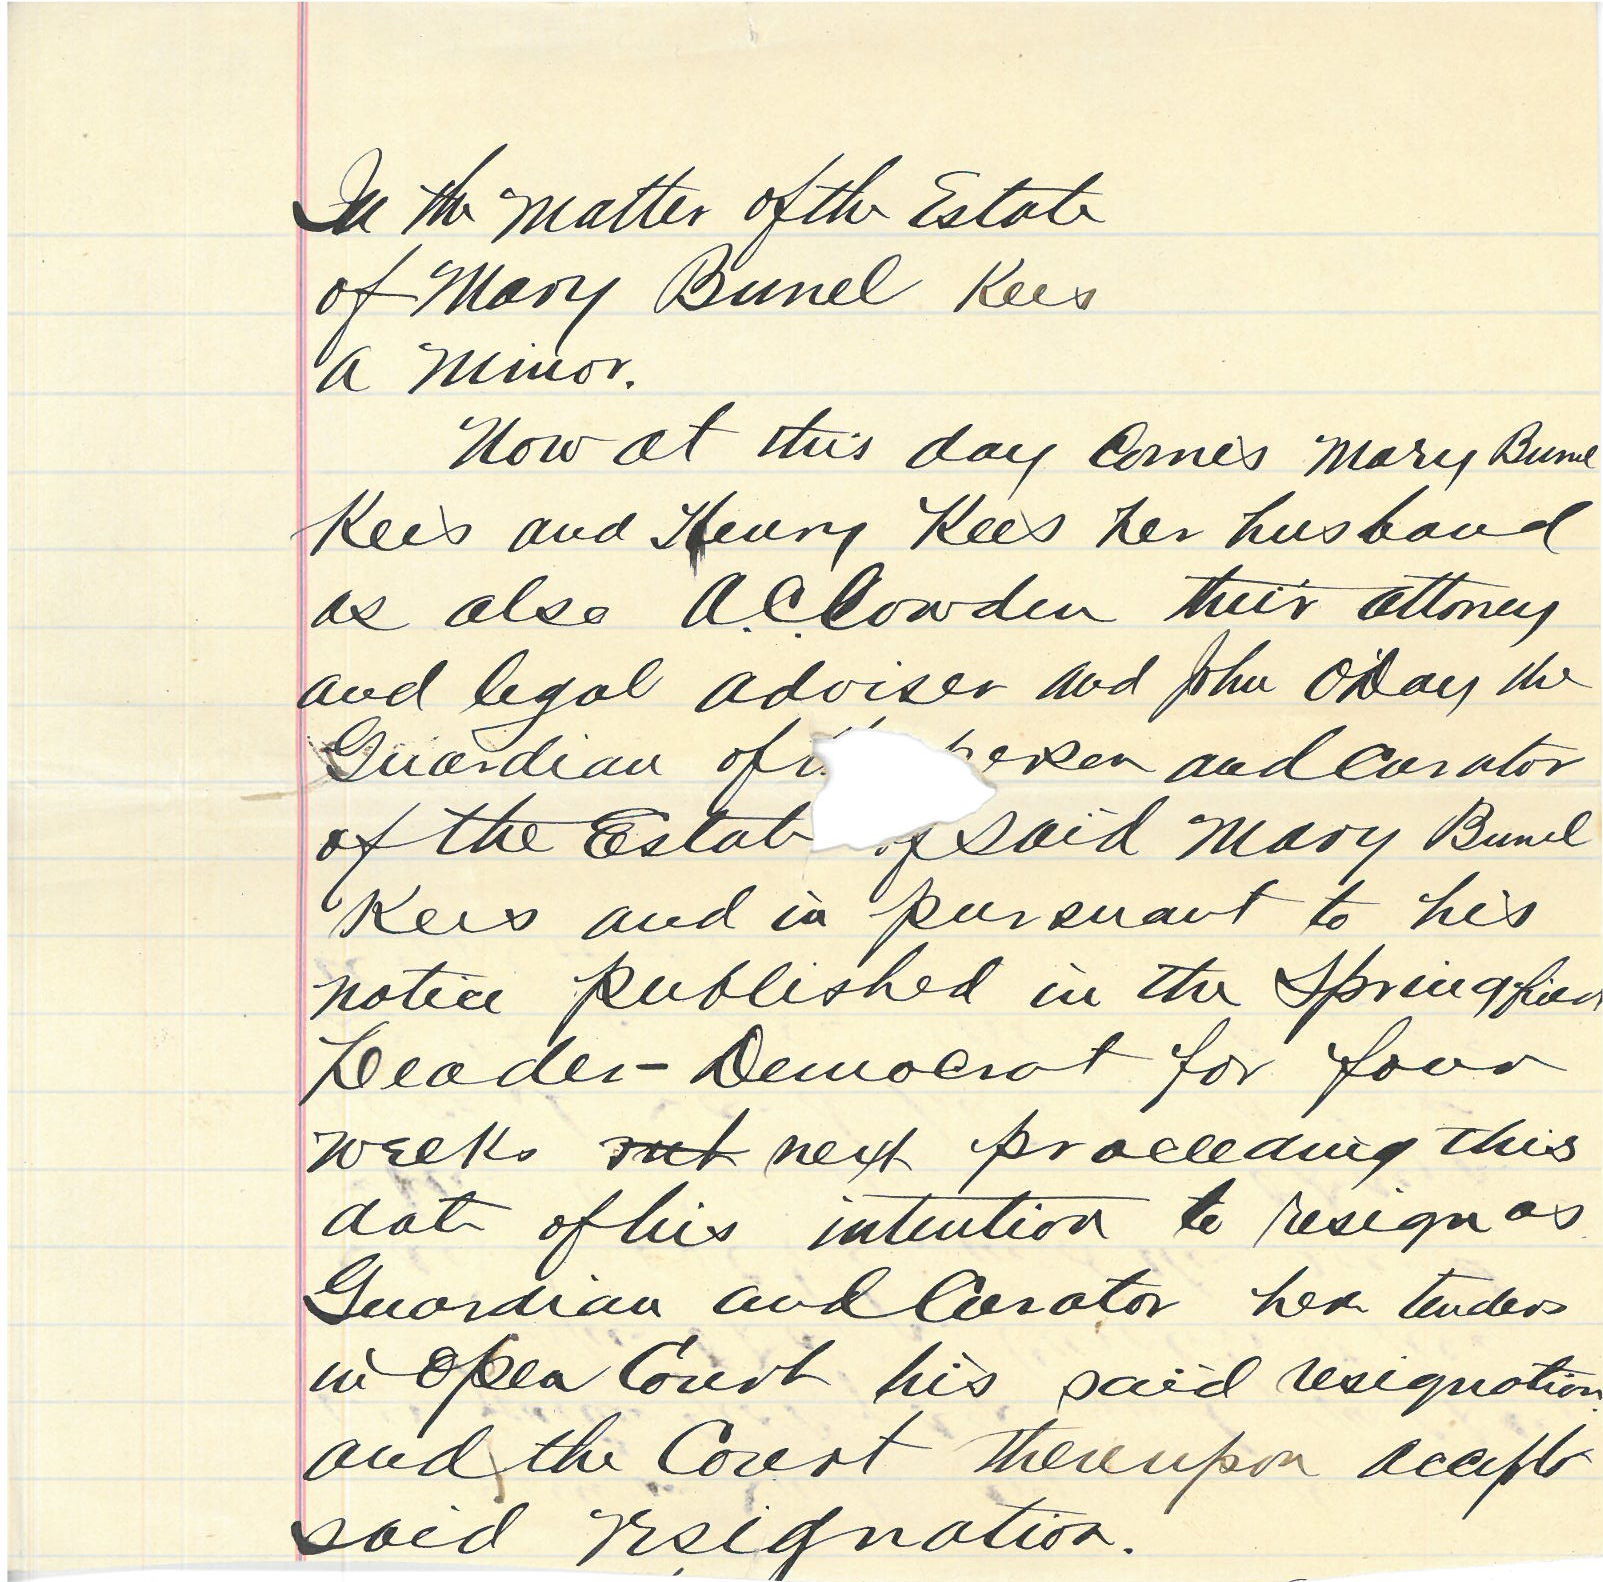 In the Matter of the Estate
of Mary Bunel Kees
a Minor.
Now at this day Comes Mary Bunel
Kees and Henry Kees her husband
as also A.C. Cowden their attorney
and legal adviser and John O'Day the
Guardian of and Curator
of the Estate of said Mary Bunel
Kees and in pursuant to his
notice published in the Springfield
Leader-Democrat for four
weeks next proceeding this
date of his intention to resign as
Guardian and Curator her tenders
in Open Court his said resignation
and the Court thereupon accepts
said resignation.